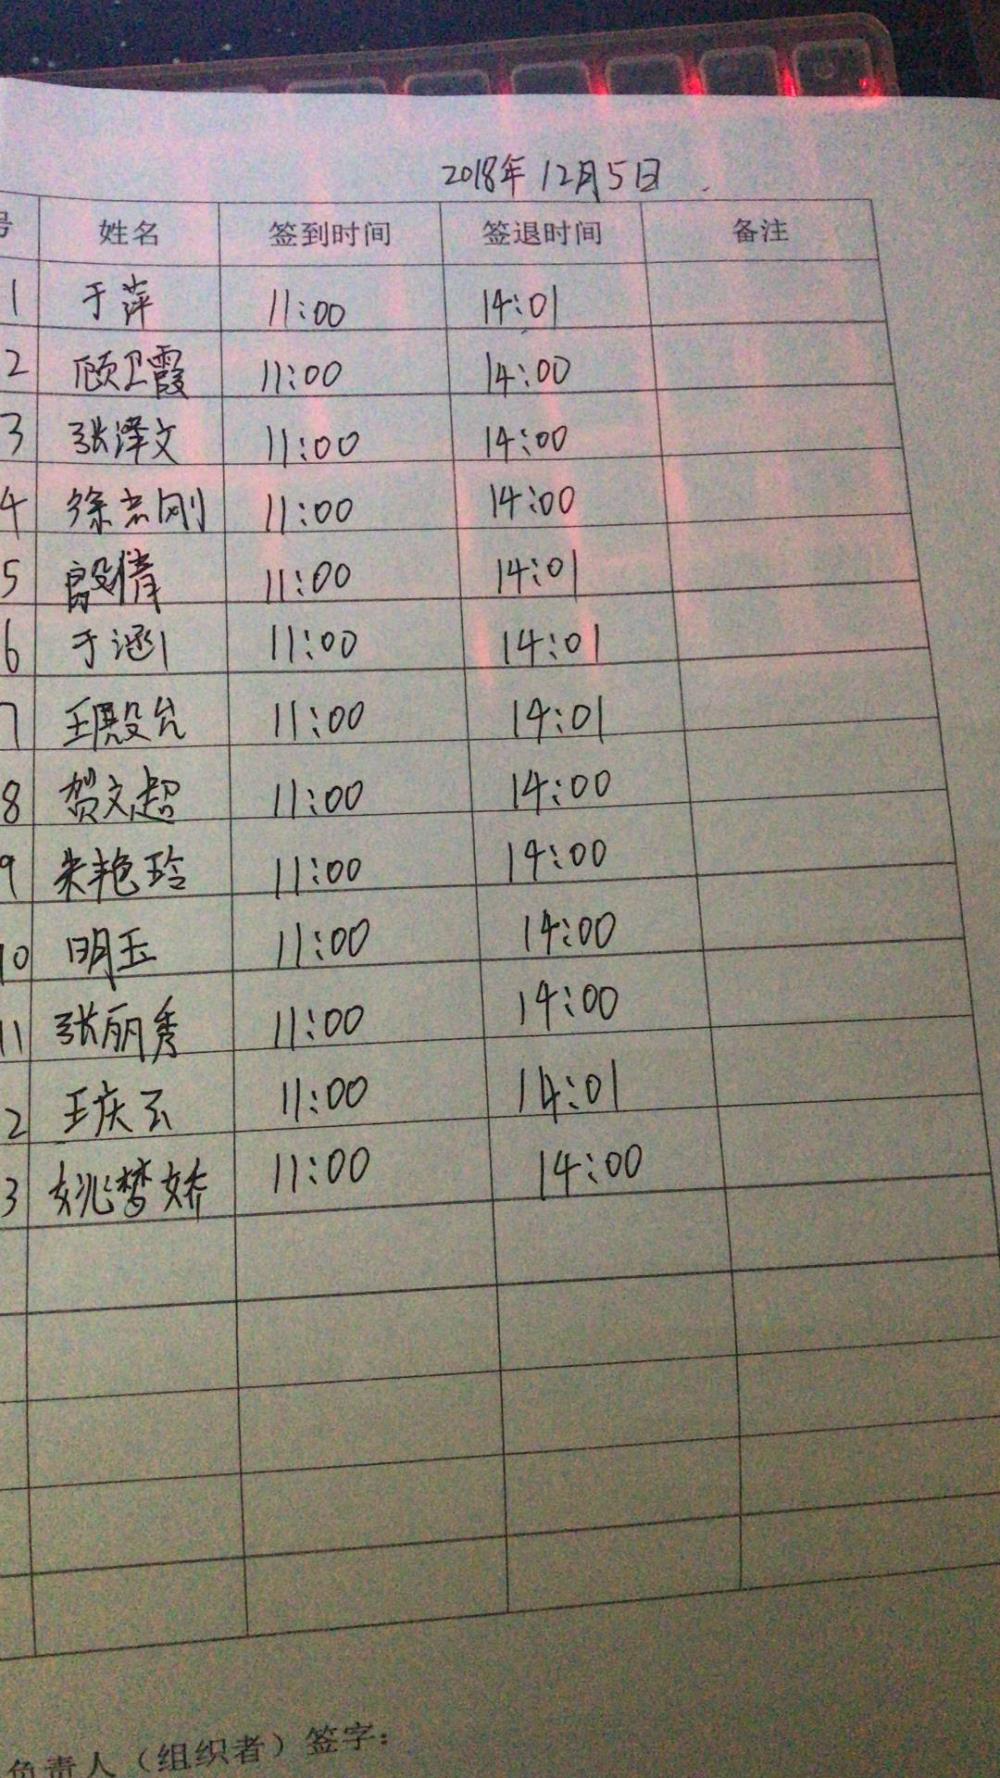 2018年12月5日
号 姓名 签到时间 签退时间 备注
1 于萍 11:00 14:01
2 顾卫霞 11:00 14:00
3 张泽文 11:00 14:00
4 徐志刚 11:00 14:00
5 殷倩 11:00 14:01
6 于涵 11:00 14:01
7 王殿允 11:00 14:01
8 贺文超 11:00 14:00
9 朱艳玲 11:00 14:00
10 明玉 11:00 14:00
11 张丽秀 11:00 14:00
2 王庆云 11:00 14:01
3 姚梦娇 11:00 14:00
负责人（组织者）签字：